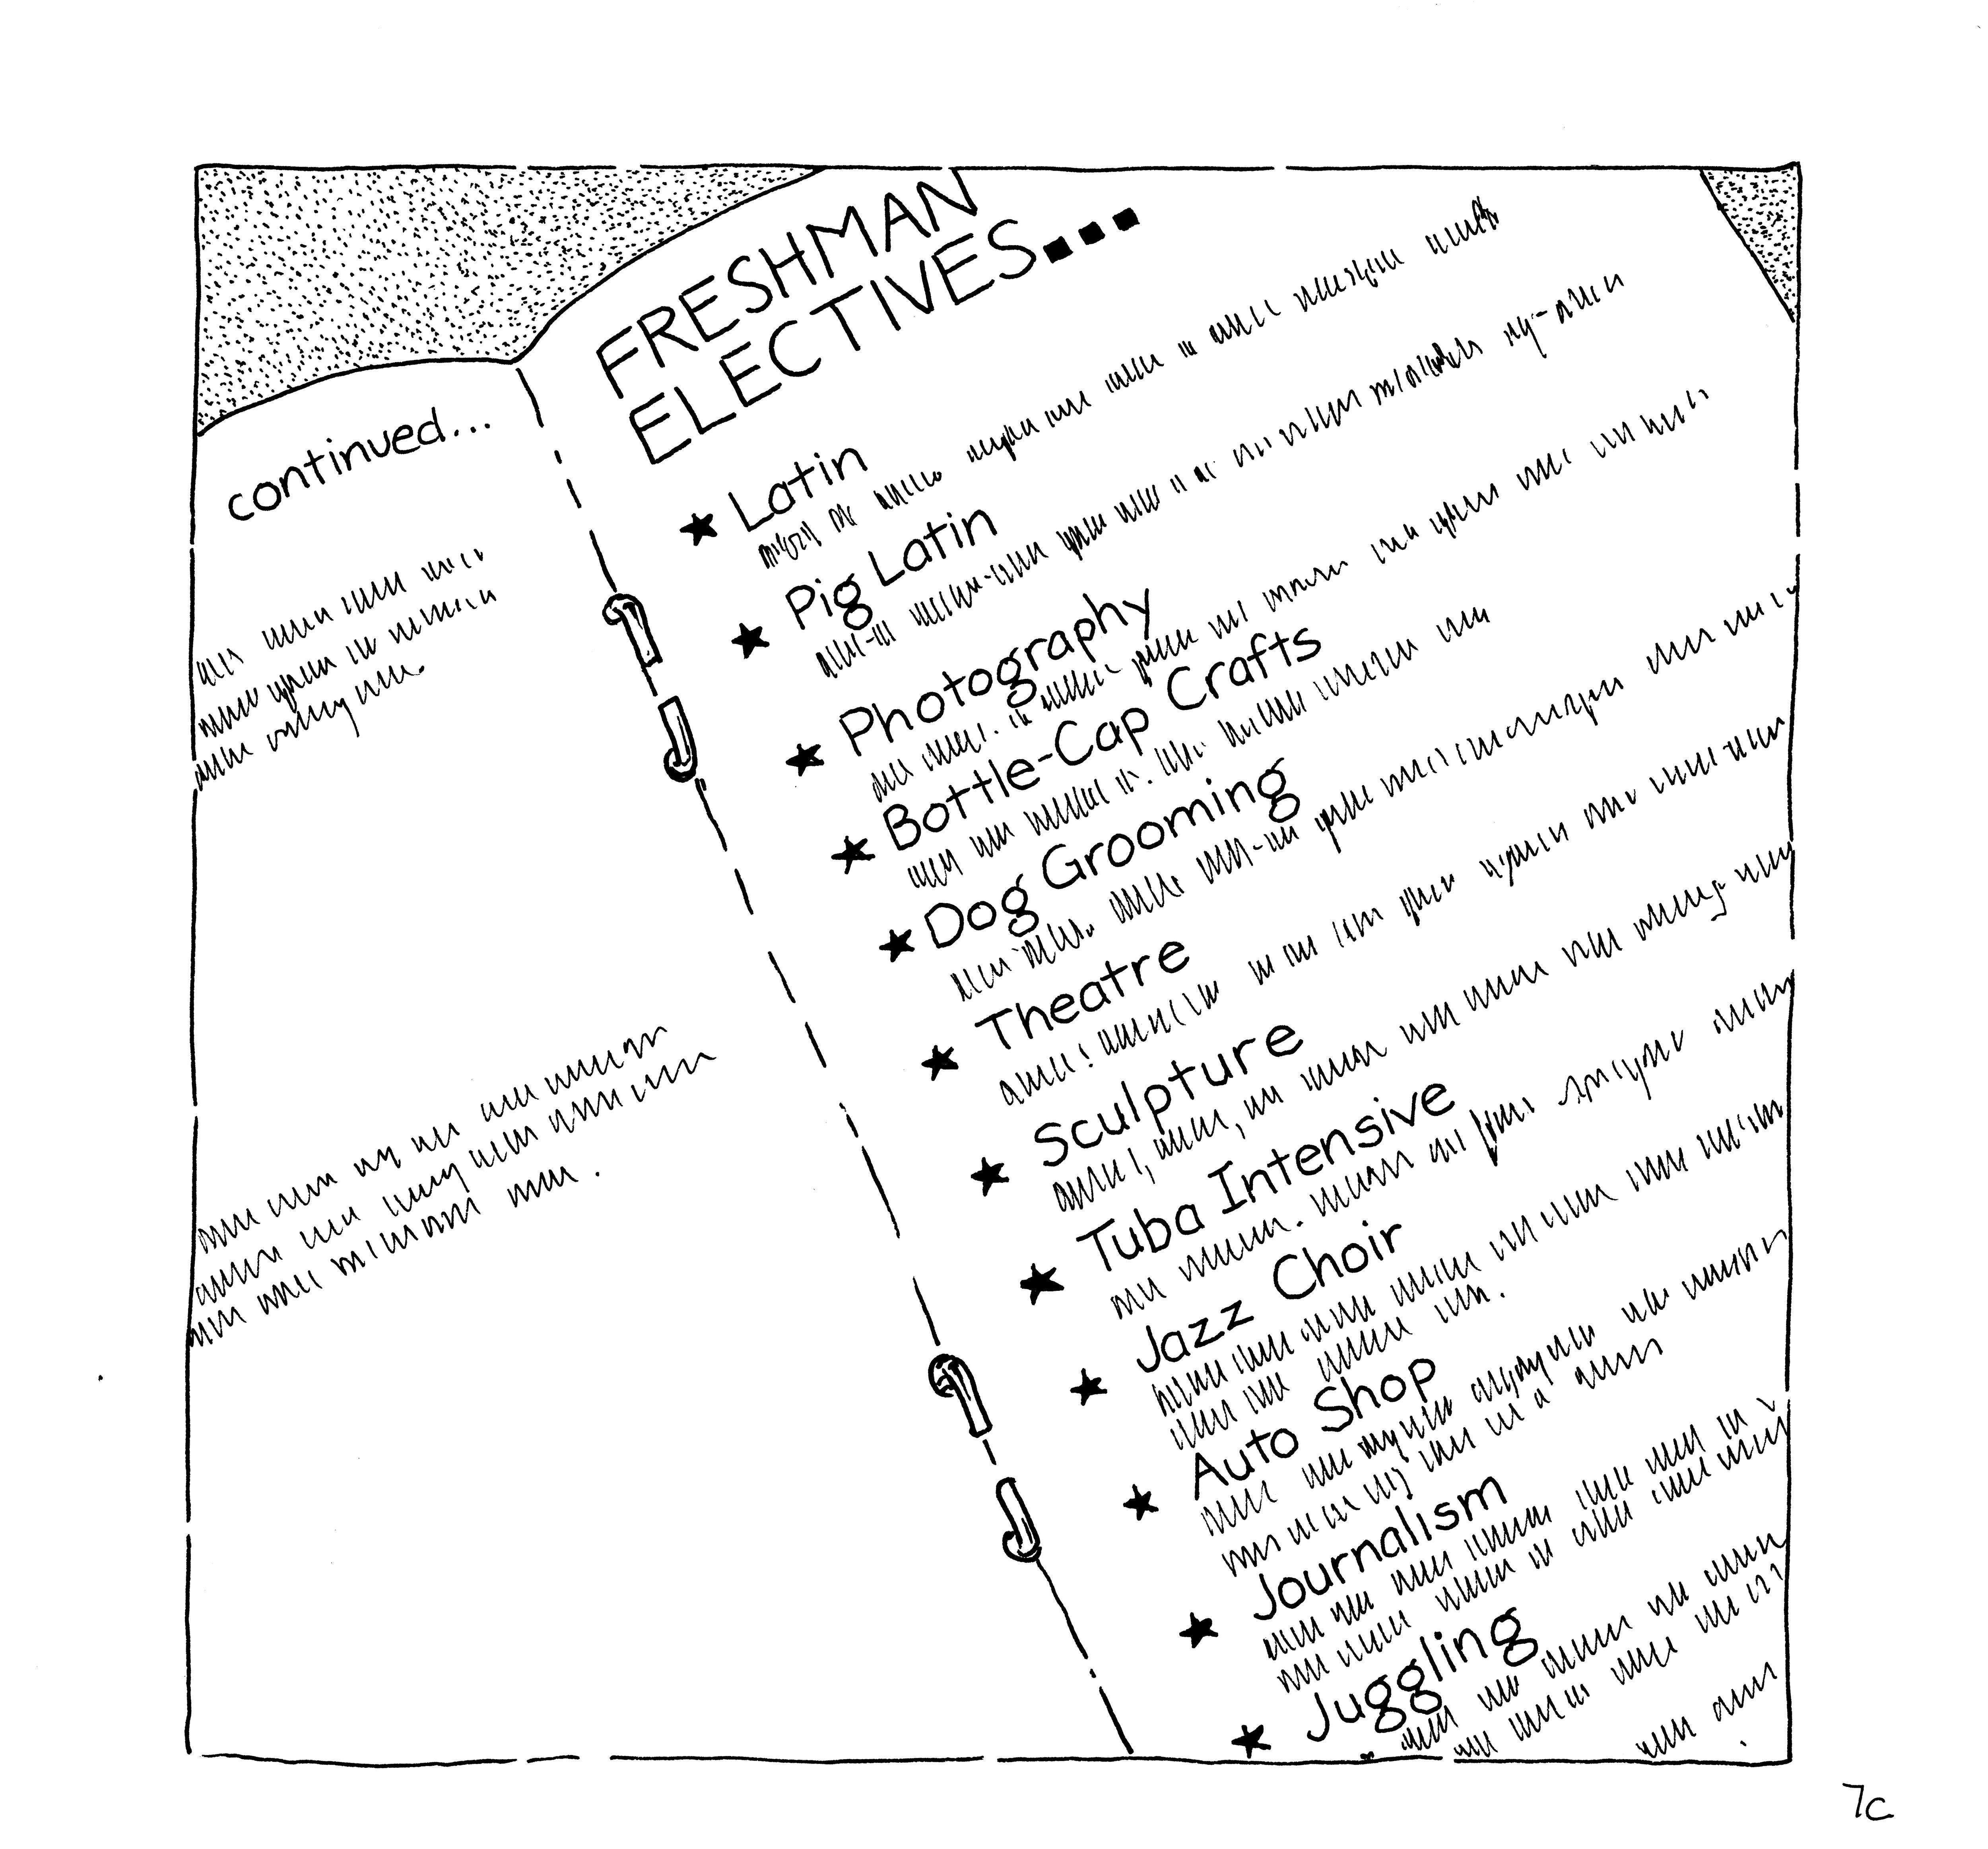 continued...
FRESHMAN
ELECTIVES...
★ Latin
★ Pig Latin
★ Photography
★ Bottle-Cap Crafts
★ Dog Grooming
★ Theatre
★ Sculpture
★ Tuba Intensive
★ Jazz Choir
★ Auto Shop
★ Journalism
★ Juggling
7c